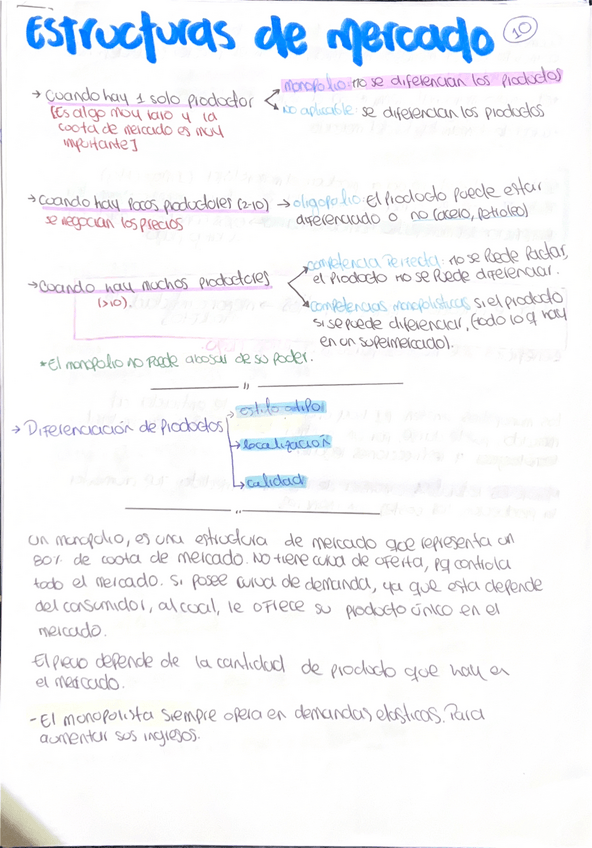 Estructuras de mercado 10
→ cuando hay 1 solo productor
monopolio: no se diferencian los productos
No aplicable: se diferencian los productos
[Es algo muy raro y la
cuota de mercado es muy
importante]
→ cuando hay pocos productores (2-10) → oligopolio: El producto puede estar
se negocian los precios
diferenciado o no (acero, petroleo)
→ cuando hay muchos productores
(>10).
competencia perfecta: no se puede pactar,
el producto no se puede diferenciar.
competencias monopolisticas si el producto
si se puede diferenciar, (todo lo q hay
en un supermercado).
*El monopolio no puede abusar de su poder.
"
→ Diferenciación de productos
estilo o tipo
→ localización
→ calidad
"
un monopolio, es una estructura de mercado que representa un
80% de cuota de mercado. No tiene curva de oferta, pq controla
todo el mercado. Si posee curva de demanda, ya que esta depende
del consumidor, al cual, le ofrece su producto único en el
mercado.
El precio depende de la cantidad de producto que hay en
el mercado.
- El monopolista siempre opera en demandas elasticas. Para
aumentar sus ingresos.